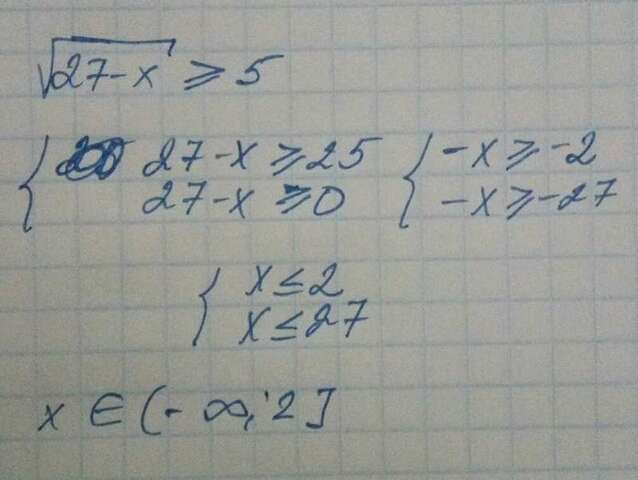 √27-x ≥ 5
{ 27-x ≥ 25 { -x ≥ -2
27-x ≥ 0 -x ≥ -27
{ x ≤ 2
x ≤ 27
x ∈ (-∞; 2]